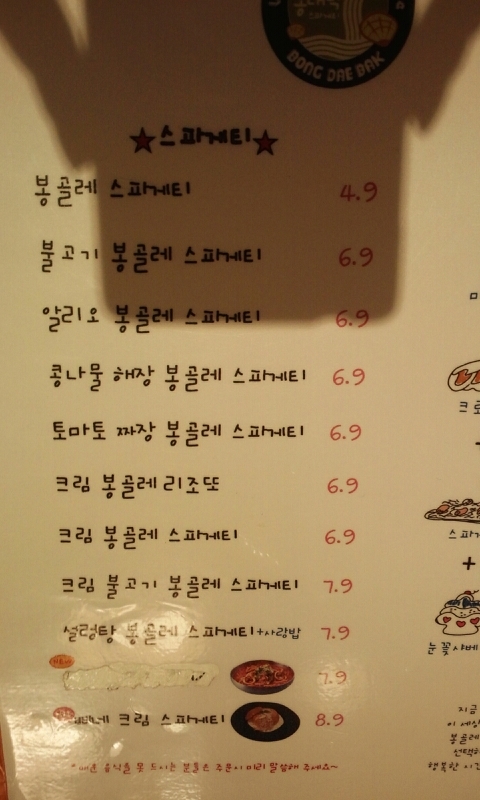 BONG DAE BAK
★스파게티★
봉골레 스파게티 4.9
불고기 봉골레 스파게티 6.9
알리오 봉골레 스파게티 6.9
콩나물 해장 봉골레 스파게티 6.9
토마토 짜장 봉골레 스파게티 6.9
크림 봉골레 리조또 6.9
크림 봉골레 스파게티 6.9
크림 불고기 봉골레 스파게티 7.9
설렁탕 봉골레 스파게티+사랑밥 7.9
7.9
크림 스파게티 8.9
*매운 음식을 못 드시는 분들은 주문시 미리 말씀해 주세요~
+
눈꽃샤베
지금
이 세상
봉골레
선택하
행복한 시간